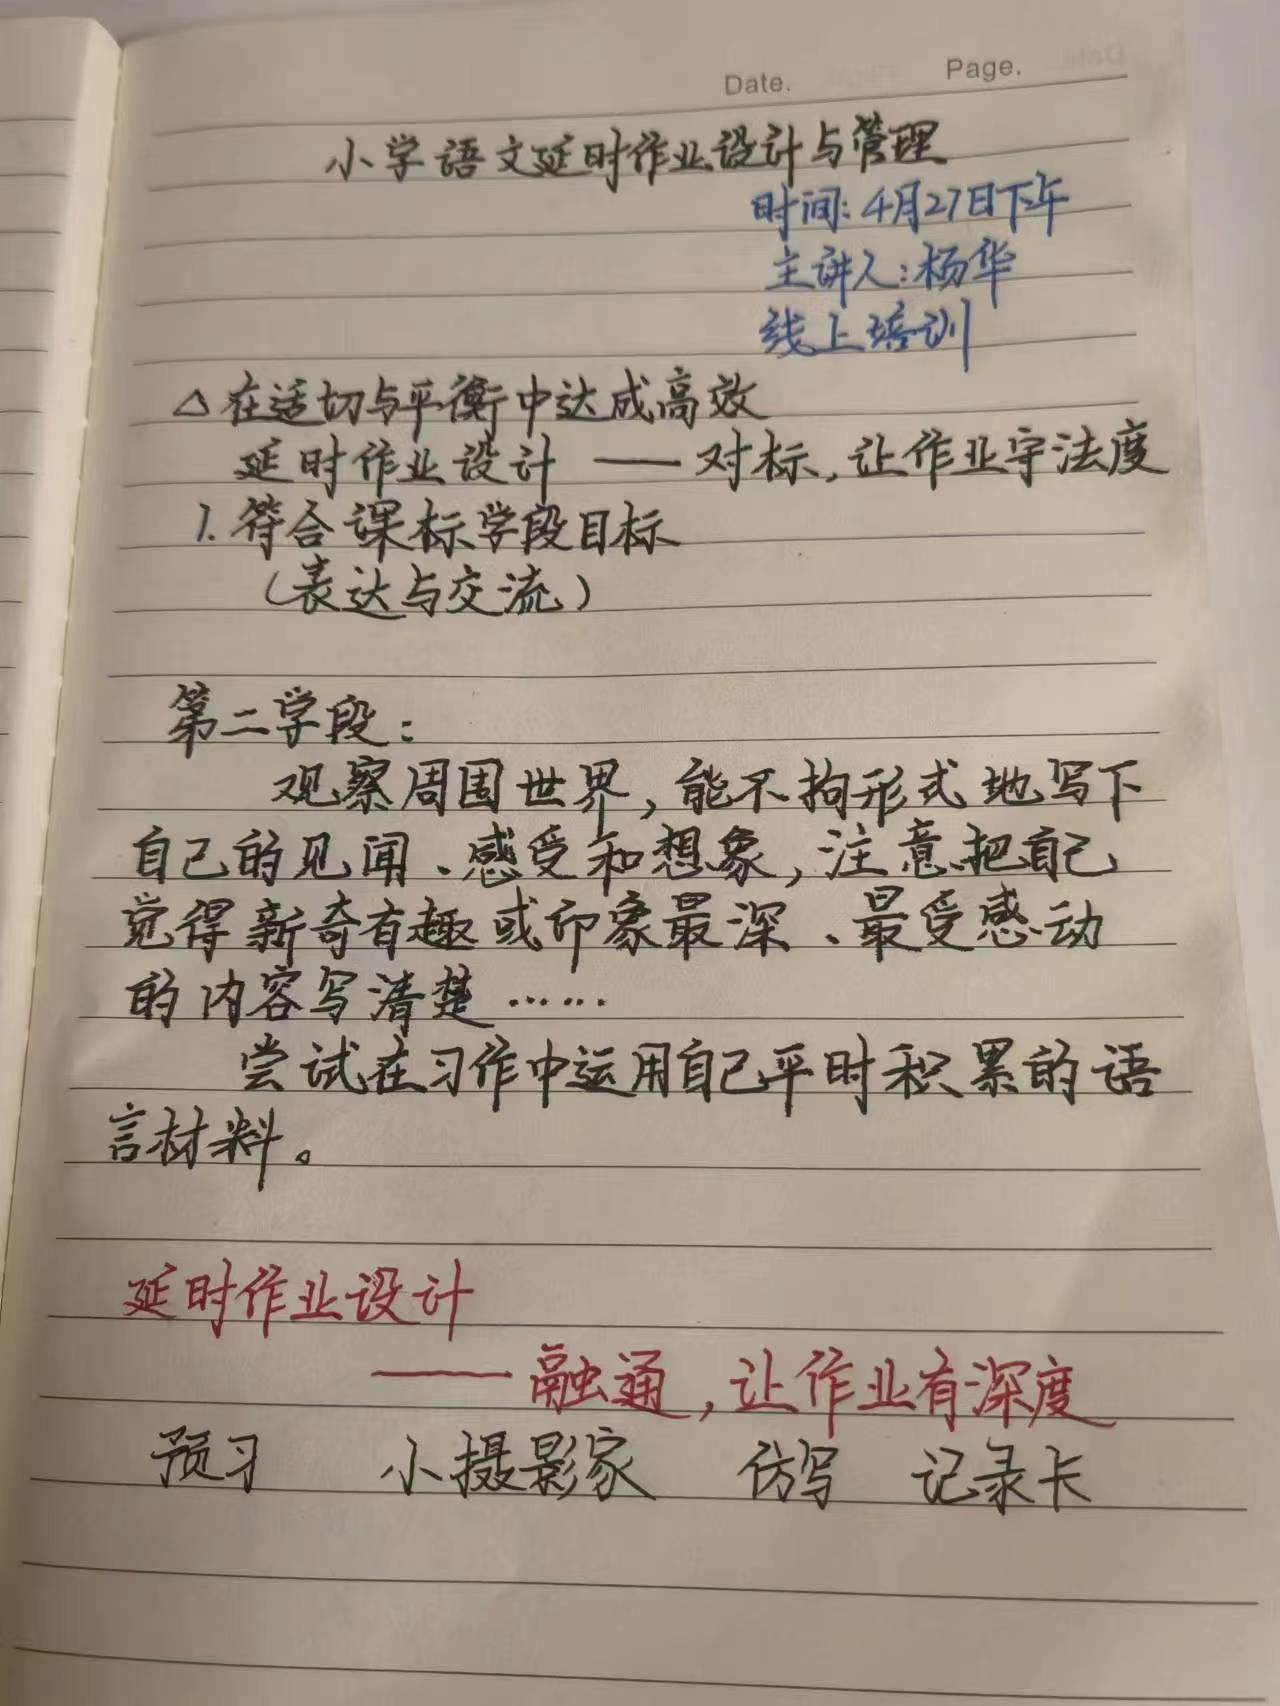 Date. Page.
小学语文延时作业设计与管理
时间:4月27日下午
主讲人:杨华
线上培训
△在适切与平衡中达成高效
延时作业设计 —— 对标,让作业守法度
1.符合课标学段目标
(表达与交流)
第二学段:
观察周围世界,能不拘形式地写下
自己的见闻、感受和想象,注意把自己
觉得新奇有趣或印象最深、最受感动
的内容写清楚……
尝试在习作中运用自己平时积累的语
言材料。
延时作业设计
——融通,让作业有深度
预习 小摄影家 仿写 记录卡